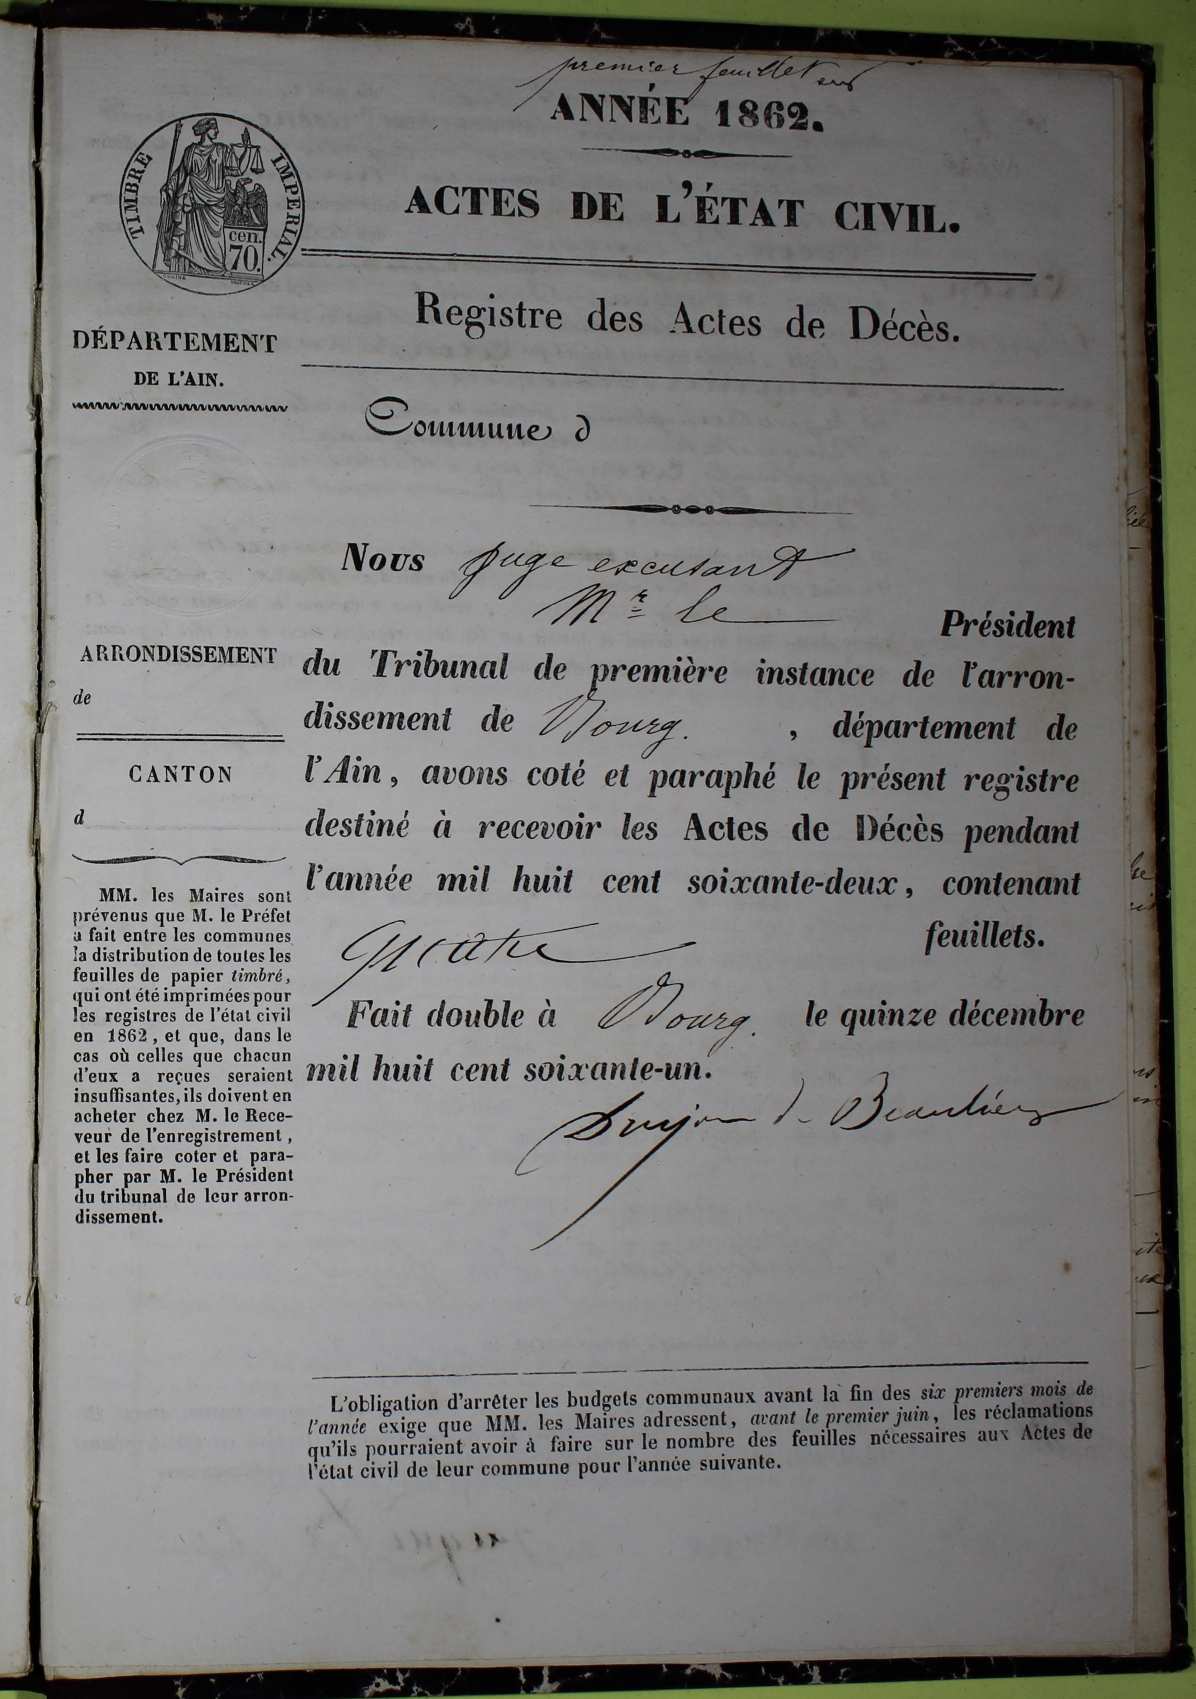 premier feuillet
ANNÉE 1862.
TIMBRE IMPERIAL.
cen.
70.
ACTES DE L'ÉTAT CIVIL.
Registre des Actes de Décès.
DÉPARTEMENT
DE L'AIN.
Commune d
Nous juge excusant
Mr le Président
du Tribunal de première instance de l'arron-
dissement de Bourg. , département de
l'Ain, avons coté et paraphé le présent registre
destiné à recevoir les Actes de Décès pendant
l'année mil huit cent soixante-deux, contenant
quatre feuillets.
Fait double à Bourg. le quinze décembre
mil huit cent soixante-un.
Dujon de Beaulieu
ARRONDISSEMENT
de
CANTON
d
MM. les Maires sont
prévenus que M. le Préfet
a fait entre les communes
la distribution de toutes les
feuilles de papier timbré,
qui ont été imprimées pour
les registres de l'état civil
en 1862, et que, dans le
cas où celles que chacun
d'eux a reçues seraient
insuffisantes, ils doivent en
acheter chez M. le Rece-
veur de l'enregistrement,
et les faire coter et para-
pher par M. le Président
du tribunal de leur arron-
dissement.
L'obligation d'arrêter les budgets communaux avant la fin des six premiers mois de
l'année exige que MM. les Maires adressent, avant le premier juin, les réclamations
qu'ils pourraient avoir à faire sur le nombre des feuilles nécessaires aux Actes de
l'état civil de leur commune pour l'année suivante.